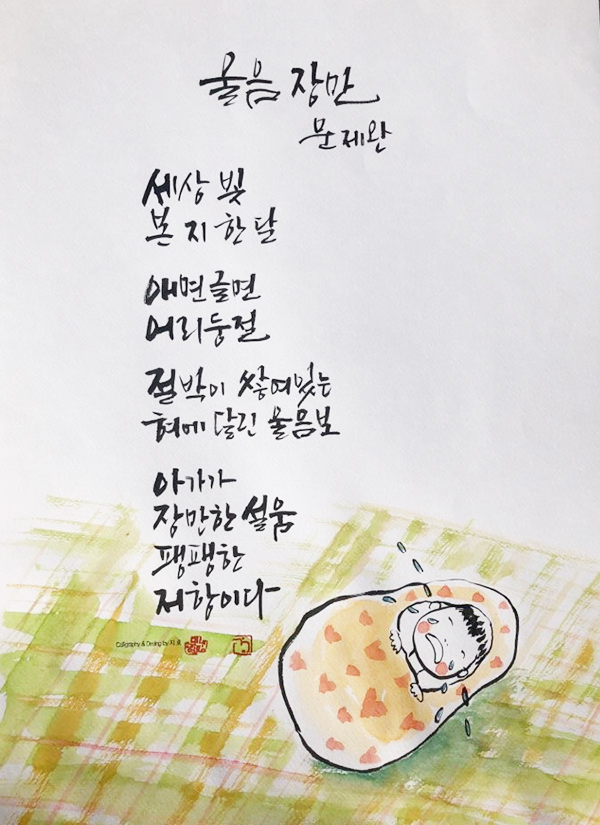 울음 장만
문제완
세상 빛
본 지 한 달
애면글면
어리둥절
절박이 쌓여있는
혀에 달린 울음보
아가가
장만한 설움
팽팽한
저항이다
Calligraphy & Drawing by